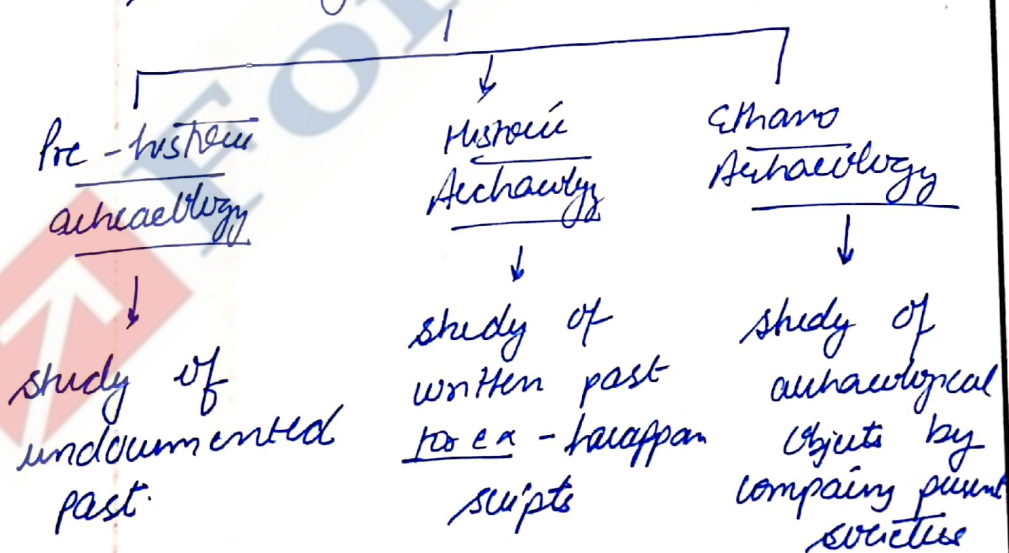 Pre-historic
archaeology
study of
undocumented
past.
Historic
Archaeology
study of
written past
for ex - harappan
scripts
Ethano
Archaeology
study of
archaeological
objects by
comparing present
societies
For